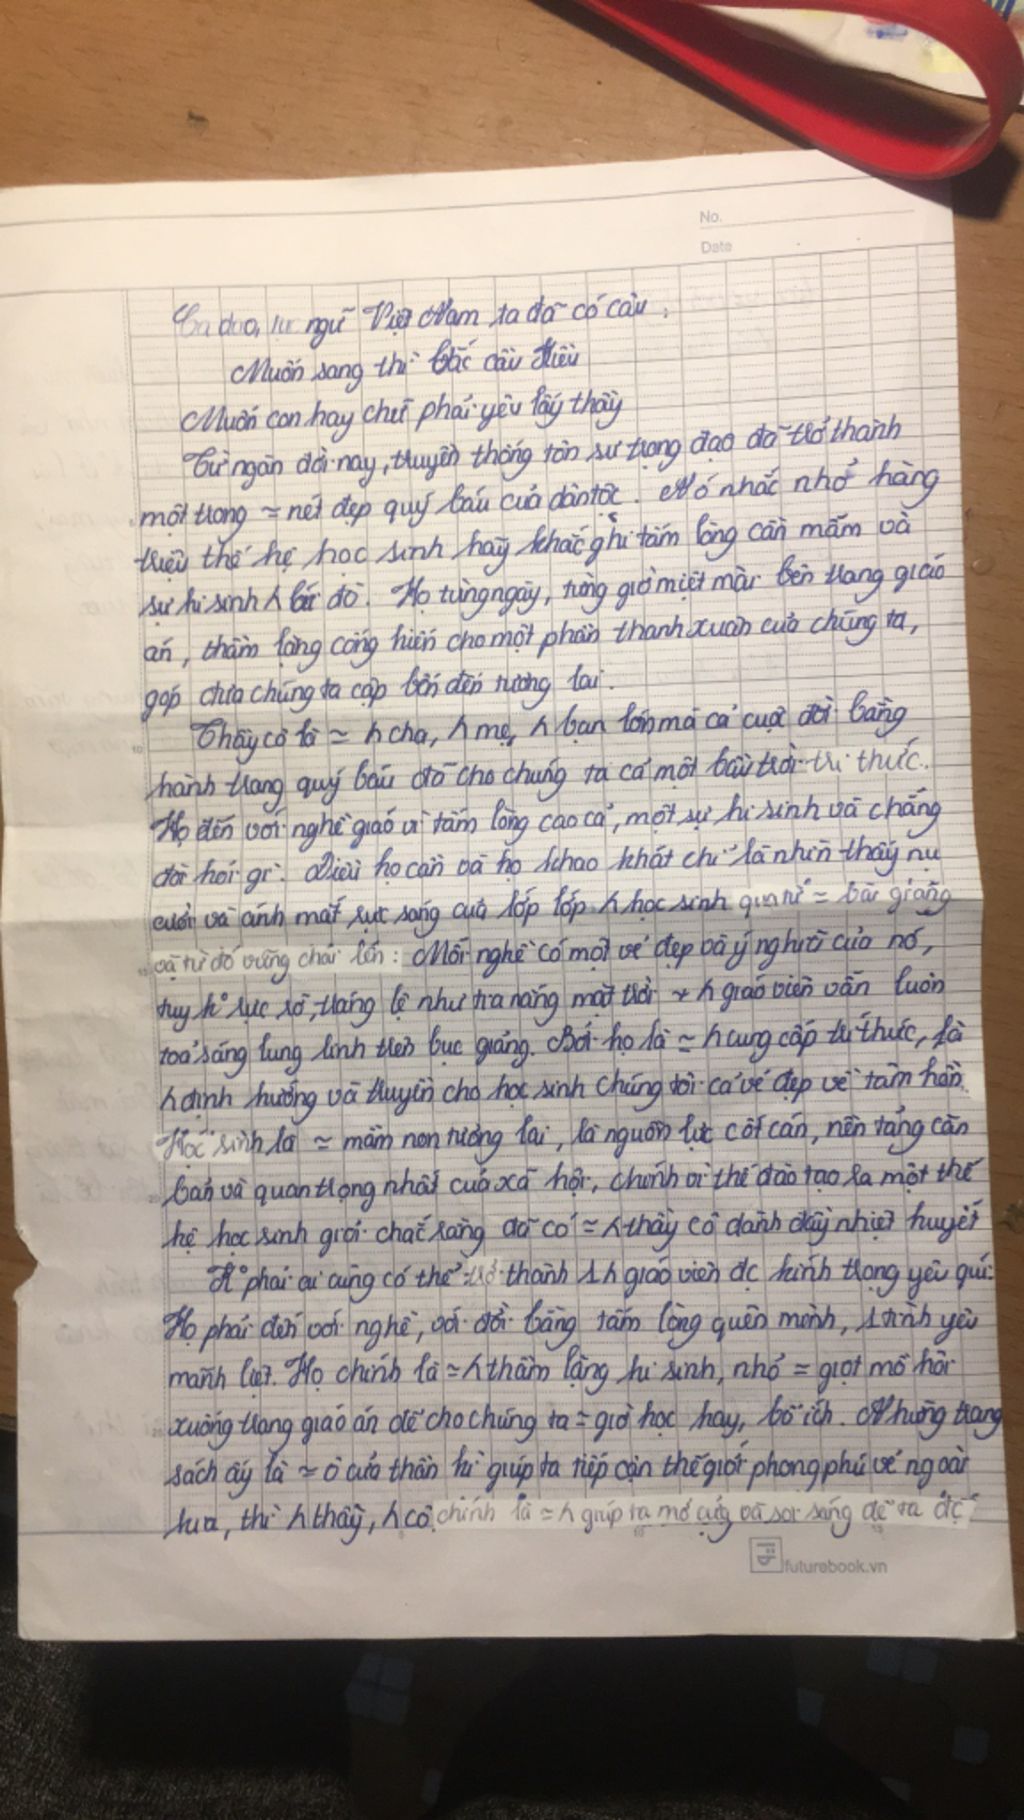 No.
Date
Ca dao, tục ngữ Việt Nam ta đã có câu:
Muốn sang thì bắc cầu Kiều
Muốn con hay chữ phải yêu lấy thầy
Từ ngàn đời nay, truyền thống tôn sư trọng đạo đã trở thành
một trong = nét đẹp quý báu của dân tộc. Nó nhắc nhở hàng
triệu thế hệ học sinh hãy khắc ghi tấm lòng cần mẫn và
sự hi sinh đó. Họ từng ngày, từng giờ miệt mài bên trang giáo
án, thầm lặng cống hiến cho một phần thanh xuân của chúng ta,
góp đưa chúng ta cập bến đến tương lai.
Thầy cô là = h cha, h mẹ, h bạn lớn mà cả cuộc đời bằng
hành trang quý báu đã cho chúng ta cả một bầu trời tri thức.
Họ đến với nghề giáo vì tấm lòng cao cả, một sự hi sinh và chẳng
đòi hỏi gì. Điều họ cần và họ khao khát chỉ là nhìn thấy nụ
cười và ánh mắt rực sáng của lớp lớp h học sinh qua từ = bài giảng
và từ đó vững chãi lên: Mỗi nghề có một vẻ đẹp và ý nghĩa của nó,
tuy k° rực rỡ, tráng lệ như tia nắng mặt trời h giáo viên vẫn luôn
toả sáng lung linh trên bục giảng. Bởi họ là = h cung cấp tri thức, là
h định hướng và truyền cho học sinh chúng tôi cả vẻ đẹp về tâm hồn.
Học sinh là = mầm non tương lai, là nguồn lực cốt cán, nền tảng căn
bản và quan trọng nhất của xã hội, chính vì thế đào tạo ra một thế
hệ học sinh giỏi chắc rằng đã có = h thầy cô dành đầy nhiệt huyết
K° phải ai cũng có thể trở thành 1 h giáo viên đc kính trọng yêu quí.
Họ phải đến với nghề, với đời bằng tấm lòng quên mình, 1 tình yêu
mãnh liệt. Họ chính là = h thầm lặng hi sinh, nhỏ = giọt mồ hôi
xuống trang giáo án để cho chúng ta = giờ học hay, bổ ích. Những trang
sách ấy là = ô cửa thần kì giúp ta tiếp cận thế giới phong phú vẻ ngoài
kia, thì h thầy, h cô chính là = h giúp ta mở cửa và soi sáng để ta đc
futurebook.vn